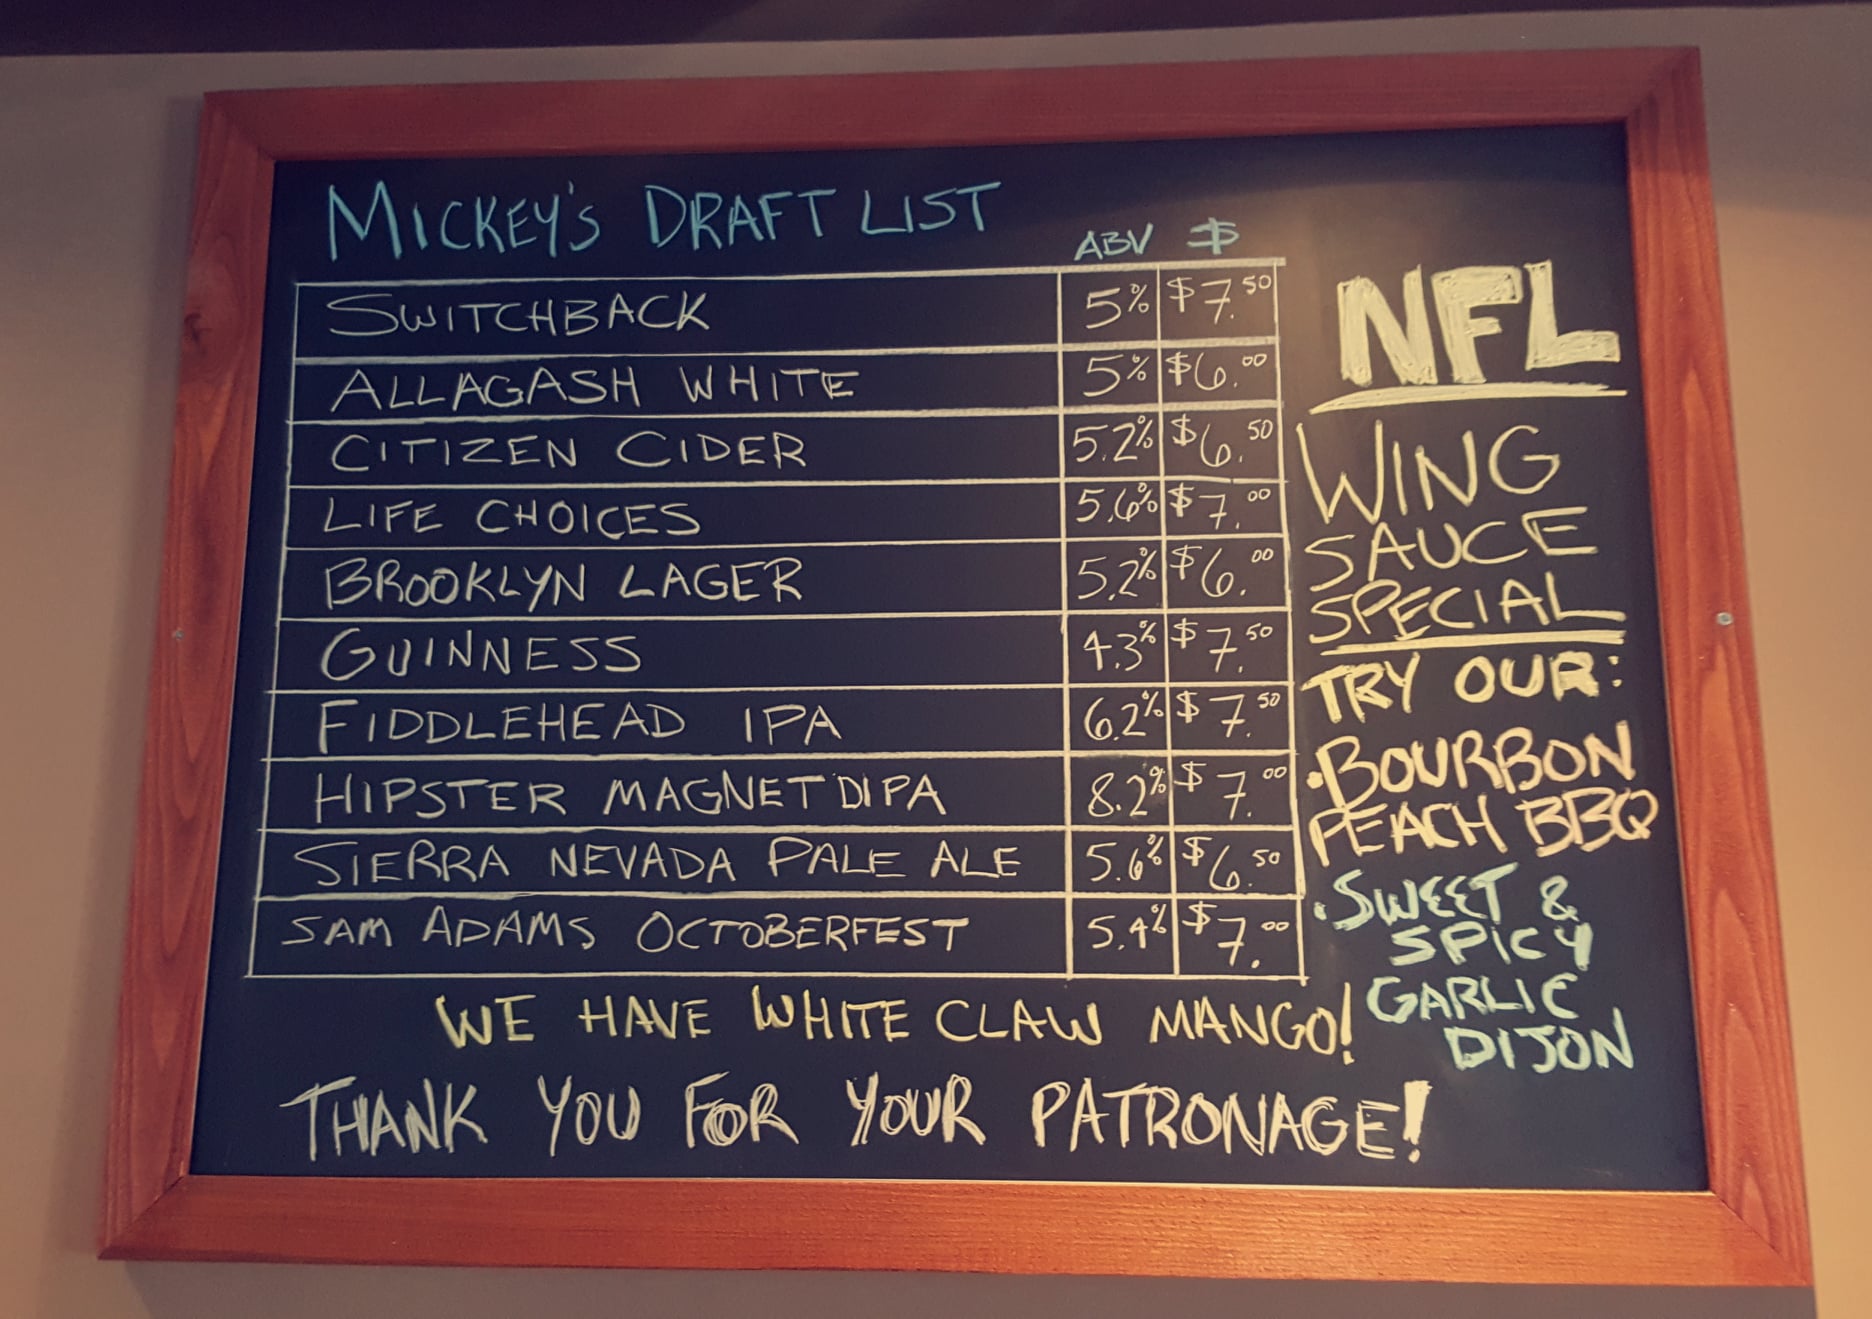 MICKEY'S DRAFT LIST
ABV $
SWITCHBACK 5% $7.50
ALLAGASH WHITE 5% $6.00
CITIZEN CIDER 5.2% $6.50
LIFE CHOICES 5.6% $7.00
BROOKLYN LAGER 5.2% $6.00
GUINNESS 4.3% $7.50
FIDDLEHEAD IPA 6.2% $7.50
HIPSTER MAGNET DIPA 8.2% $7.00
SIERRA NEVADA PALE ALE 5.6% $6.50
SAM ADAMS OCTOBERFEST 5.4% $7.00
WE HAVE WHITE CLAW MANGO!
THANK YOU FOR YOUR PATRONAGE!
NFL
WING
SAUCE
SPECIAL
TRY OUR:
• BOURBON
PEACH BBQ
• SWEET &
SPICY
GARLIC
DIJON